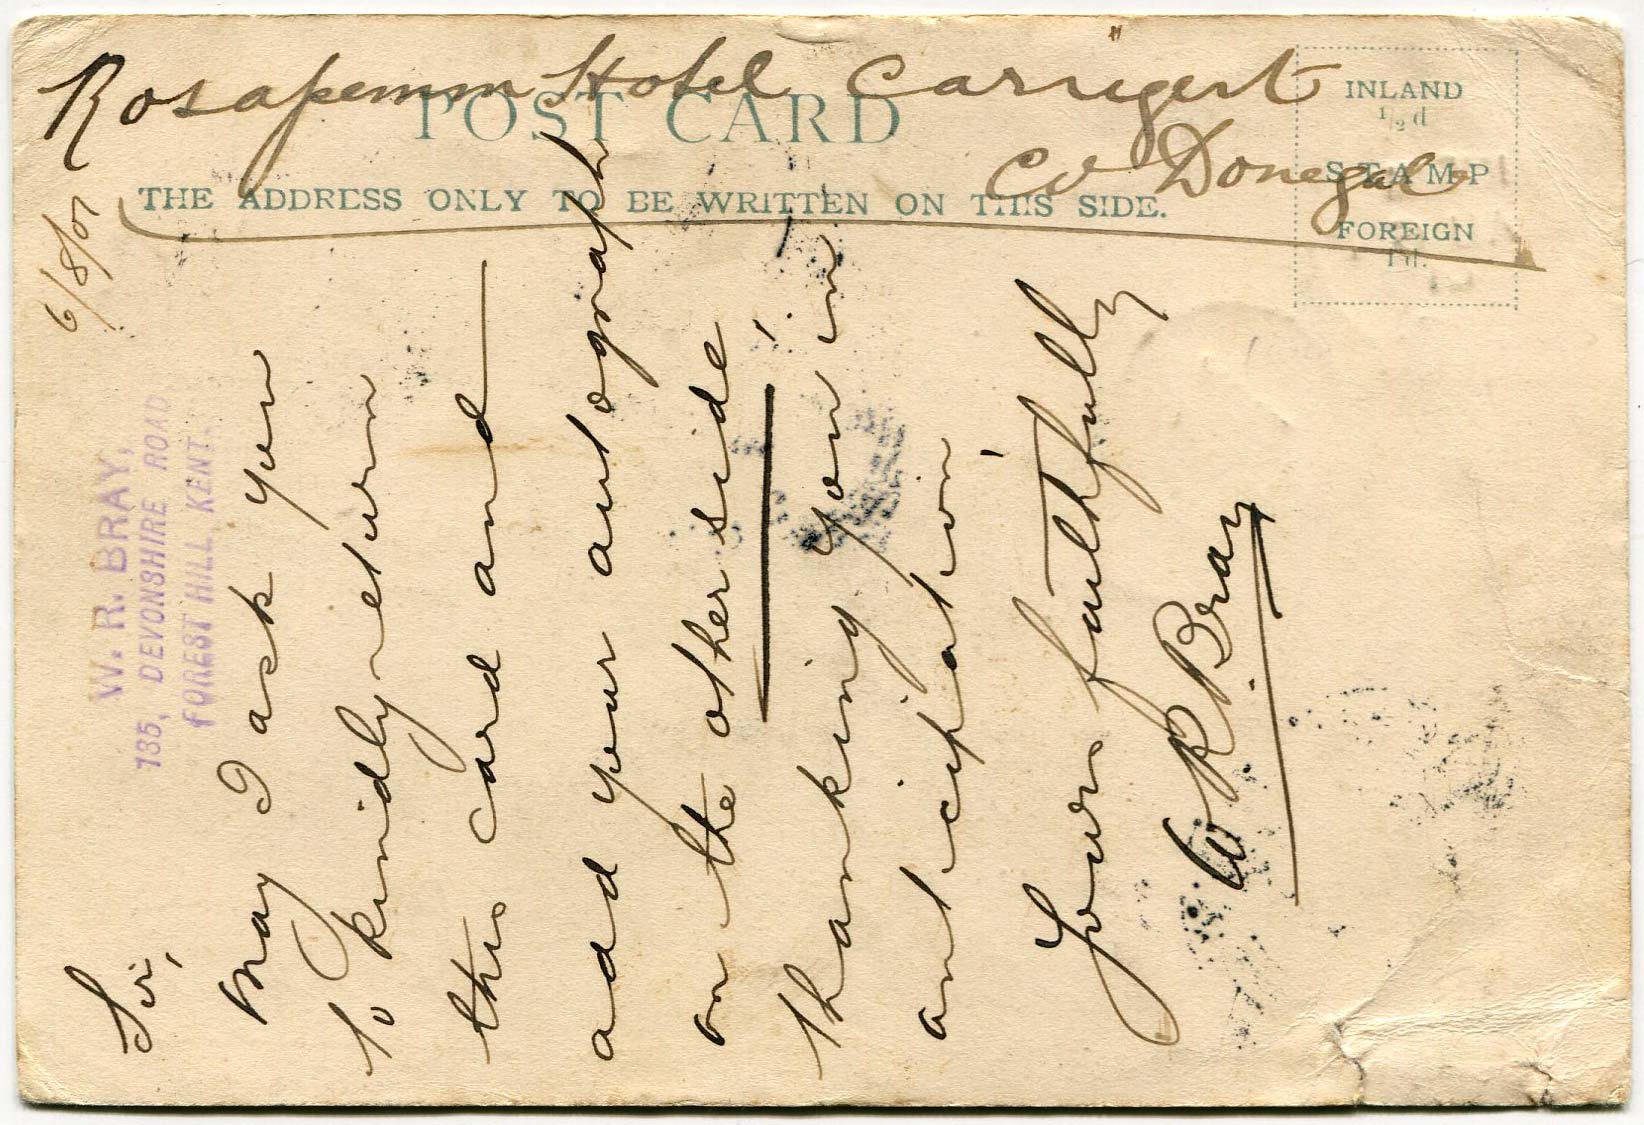 Rosapenna Hotel Carrigart
Co Donegal
POST CARD
THE ADDRESS ONLY TO BE WRITTEN ON THIS SIDE.
INLAND
½d
STAMP
FOREIGN
1d.
6/8/07
W. R. BRAY,
135, DEVONSHIRE ROAD,
FOREST HILL, KENT.
Sir,
May I ask you
to kindly return
this card and
add your autograph
on the other side
thanking you in
anticipation
Yours faithfully
W R. Bray